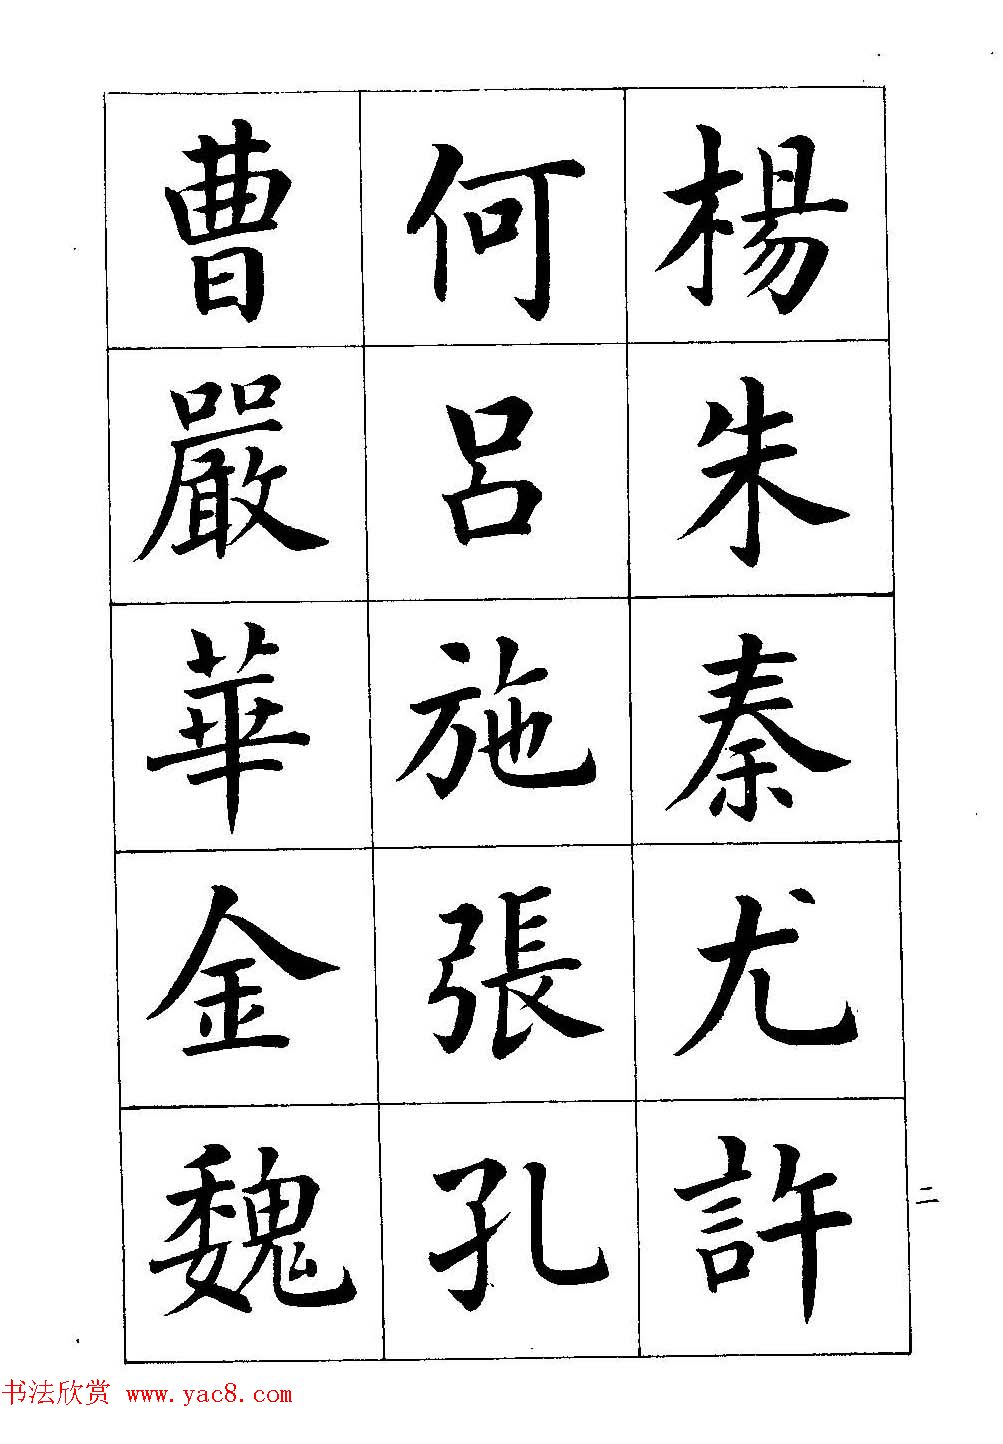 楊朱秦尤許
何吕施張孔
曹嚴華金魏
二
书法欣赏 www.yac8.com